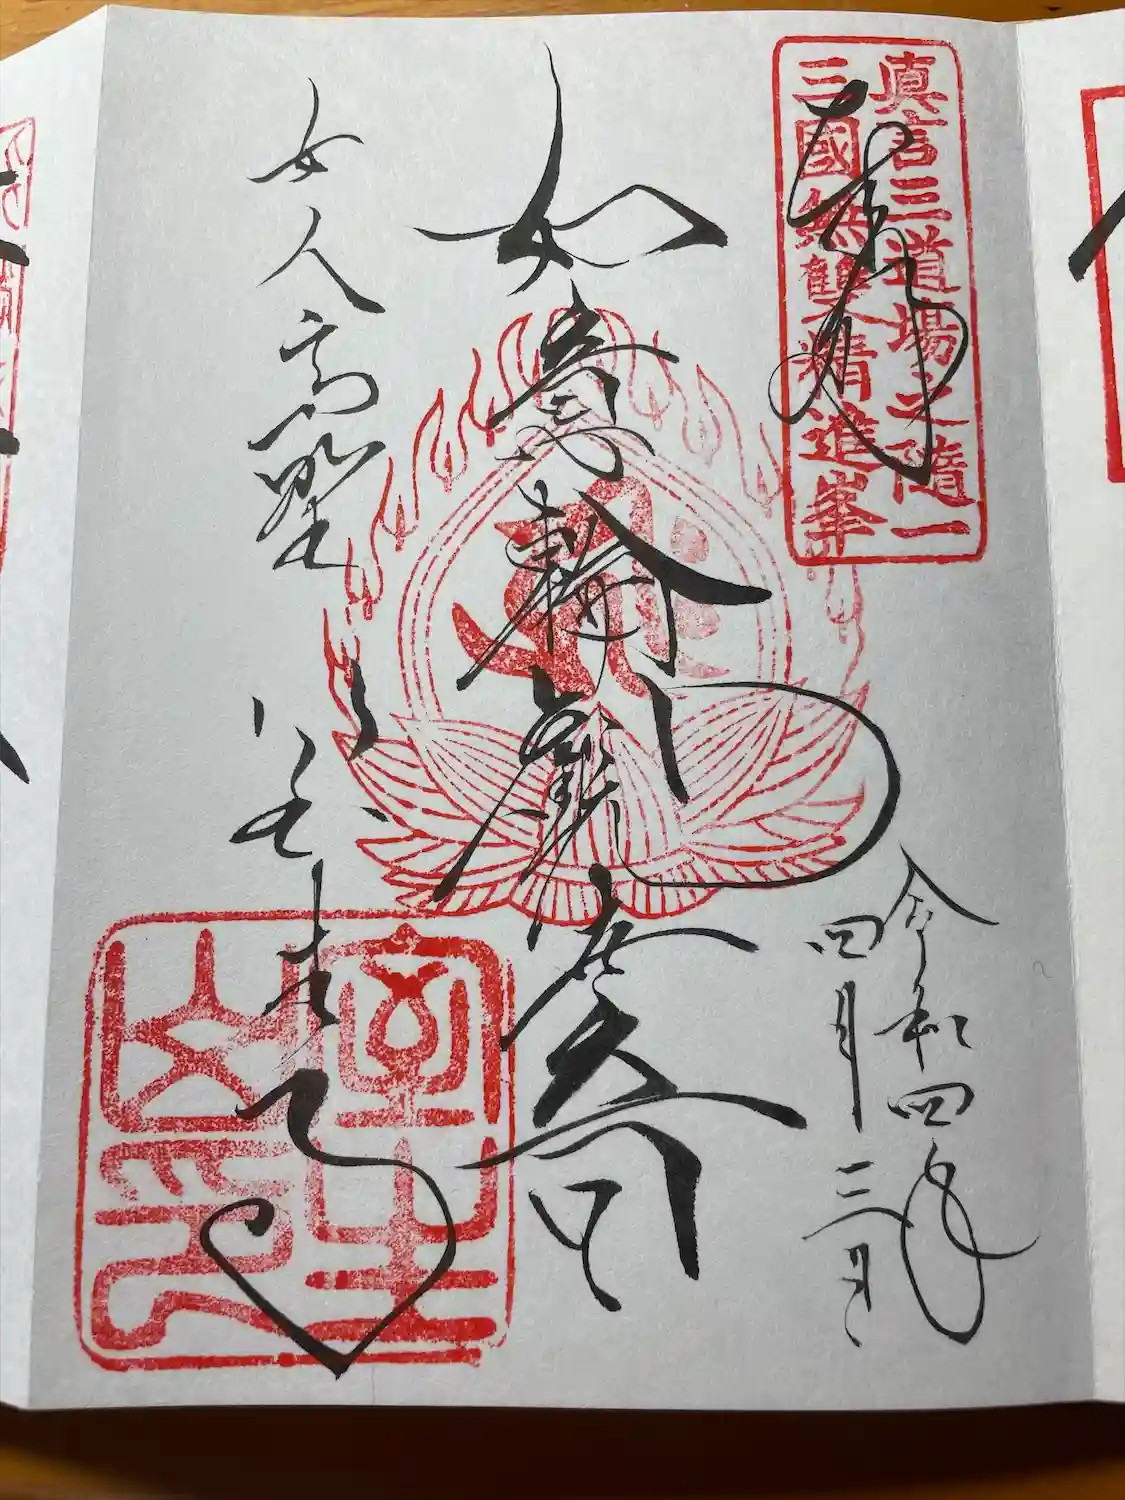 真言三道場之随一
三國無雙精進峯
奉拝
令和四年
四月三日
如意輪
女人高野
室生寺